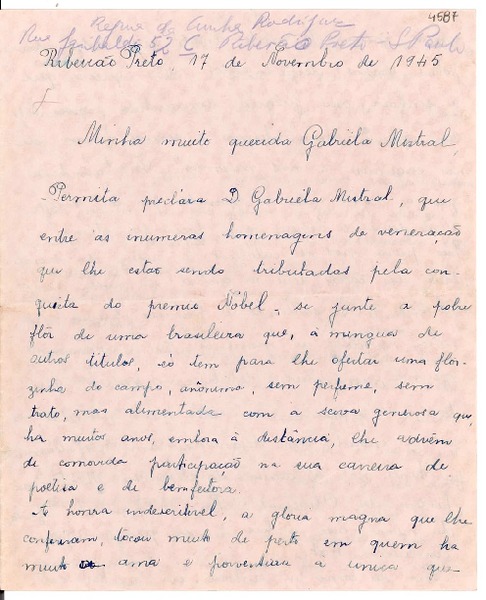 4587
Regina da Cunha Rodrigues
Rua Garibaldi 52 C Ribeirão Preto S. Paulo
Ribeirão Preto, 17 de Novembro de 1945
Minha muito querida Gabriela Mistral,
Permita preclara D. Gabriela Mistral, que
entre as inumeras homenagens de veneração
que lhe estão sendo tributadas pela con-
quista do premio Nobel, se junte a pobre
flôr de uma brasileira que, á mingua de
outros titulos, só tem para lhe ofertar uma flor-
zinha do campo, anônima, sem perfume, sem
trato, mas alimentada com a seiva generosa que,
ha muitos anos, embora á distância, lhe advém
de comovida participação na sua carreira de
poetisa e de benfeitora.
A honra indescritivel, a gloria magna que lhe
conferiram, tocou muito de perto em quem ha
muito a ama e a unica que